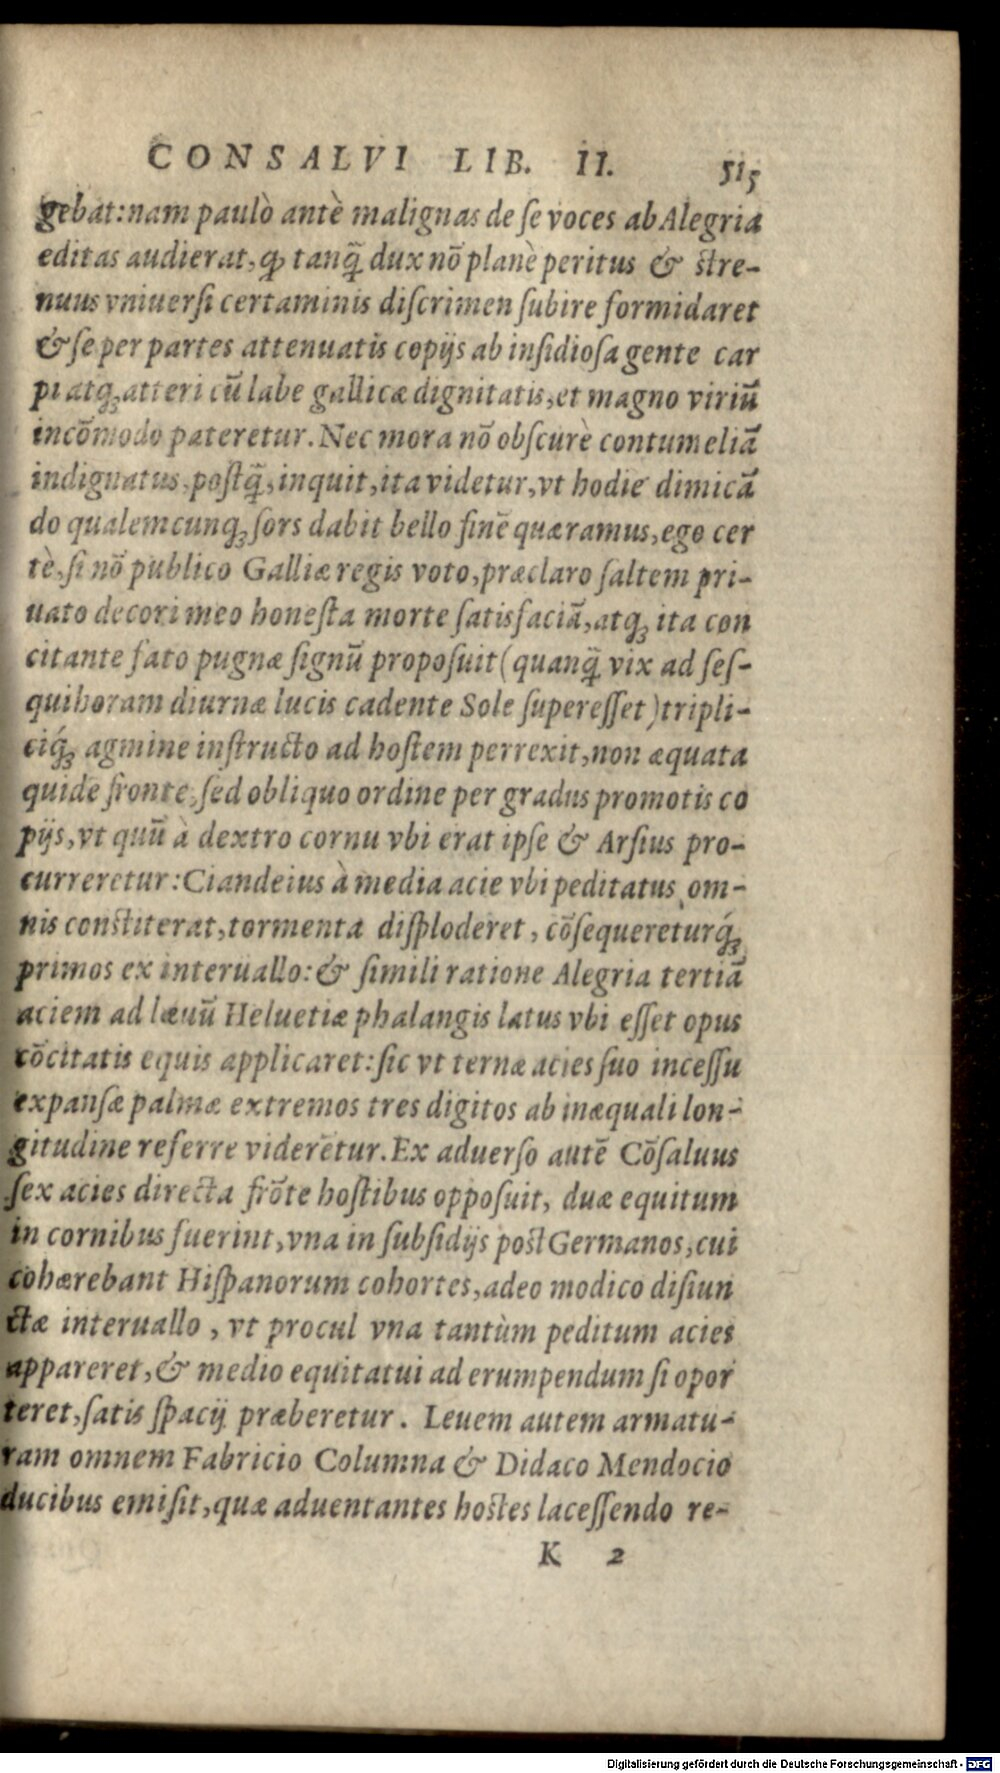 CONSALVI LIB. II. 515
gebat: nam paulò antè malignas de ſe voces ab Alegria
editas audierat, ꝙ tanq̃ dux nõ planè peritus & ſtre-
nuus vniuerſi certaminis diſcrimen ſubire formidaret
& ſe per partes attenuatis copijs ab inſidioſa gente car
pi atq; atteri cũ labe gallicæ dignitatis, et magno viriũ
incõmodo pateretur. Nec mora nõ obſcurè contumeliã
indignatus, poſtq̃, inquit, ita videtur, vt hodie dimicã
do qualemcunq; ſors dabit bello finẽ quæramus, ego cer
tè, ſi nõ publico Galliæ regis voto, præclaro ſaltem pri-
uato decori meo honeſta morte ſatisfaciã, atq; ita con
citante fato pugnæ ſignũ propoſuit (quanq̃ vix ad ſeſ-
quihoram diurnæ lucis cadente Sole ſupereſſet) tripli-
ciq́; agmine inſtructo ad hoſtem perrexit, non æquata
quidẽ fronte, ſed obliquo ordine per gradus promotis co
pijs, vt quũ à dextro cornu vbi erat ipſe & Arſius pro-
curreretur: Ciandeius à media acie vbi peditatus om-
nis conſtiterat, tormenta diſploderet, cõſequereturq́;
primos ex interuallo: & ſimili ratione Alegria tertiã
aciem ad læuũ Heluetiæ phalangis latus vbi eſſet opus
cõcitatis equis applicaret: ſic vt ternæ acies ſuo inceſſu
expanſæ palmæ extremos tres digitos ab inæquali lon-
gitudine referre viderẽtur. Ex aduerſo autẽ Cõſaluus
ſex acies directa frõte hoſtibus oppoſuit, duæ equitum
in cornibus fuerint, vna in ſubſidijs poſt Germanos, cui
cohærebant Hiſpanorum cohortes, adeo modico diſiun
ctæ interuallo, vt procul vna tantùm peditum acies
appareret, & medio equitatui ad erumpendum ſi opor
teret, ſatis ſpacij præberetur. Leuem autem armatu-
ram omnem Fabricio Columna & Didaco Mendocio
ducibus emiſit, quæ aduentantes hoſtes laceſſendo re-
K 2
Digitalisierung gefördert durch die Deutsche Forschungsgemeinschaft - DFG